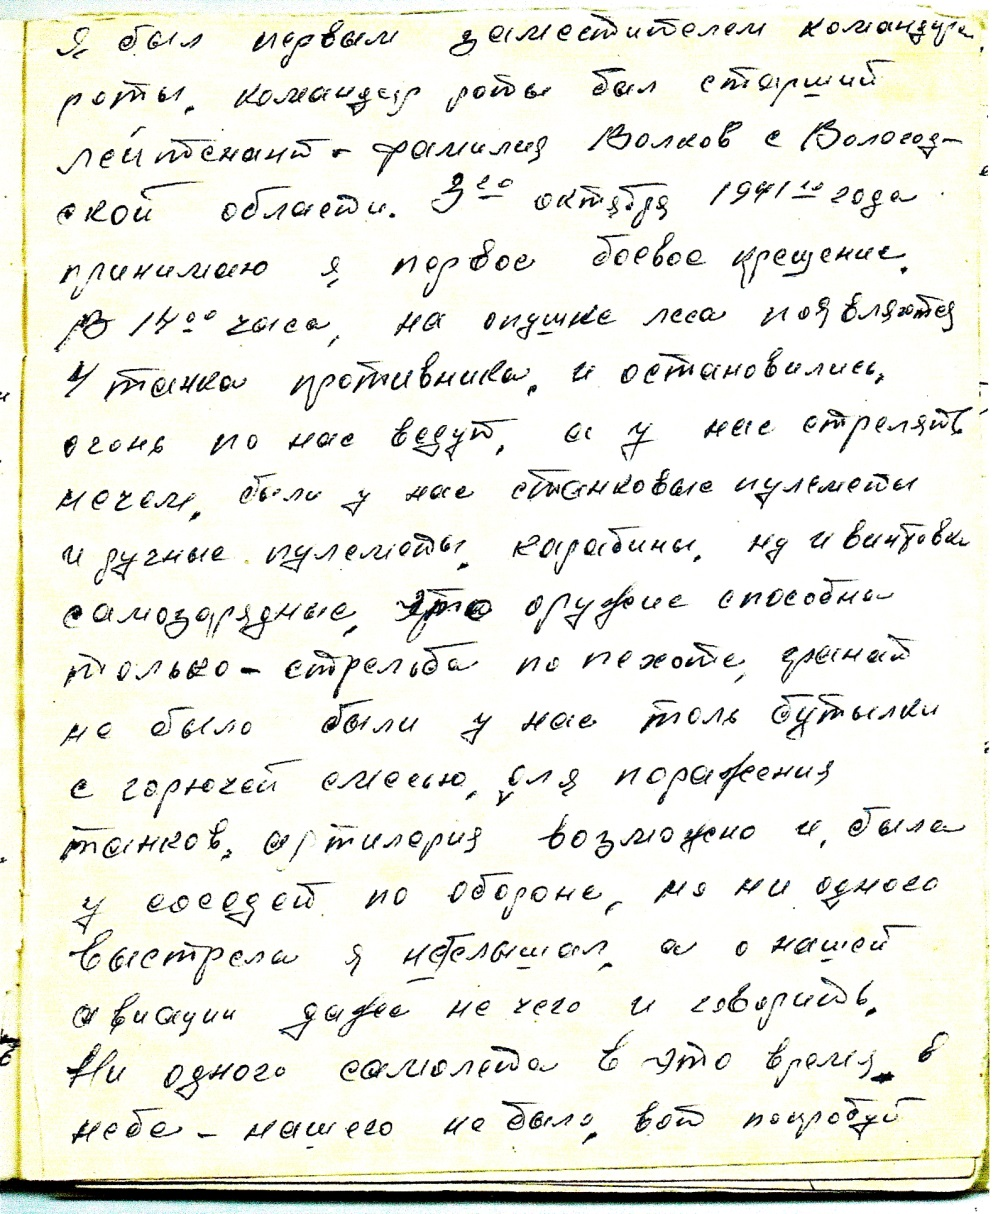 Я, был первым заместителем командира
роты. командир роты был старший
лейтенант - фамилия Волков с Вологод-
ской области. 3го октября 1941го года
принимаю я, первое боевое крещение.
В 14оо часа, на опушке леса появляются
4 танка противника, и остановились,
огонь по нас ведут, а у нас стрелять
нечем, были у нас станковые пулеметы
и ручные пулеметы, карабины, ну и винтовки
самозарядные, это оружие способна
только - стрельба по пехоте, гранат
не было были у нас толь бутылки
с горючей смесью, для поражения
танков, артилерия возможно и, была
у соседей по обороне, но ни одного
выстрела я неслышал, а о нашей
авиации даже не чего и говорить.
Ни одного самолета в это время в
небе - нашего не было, вот попробуй